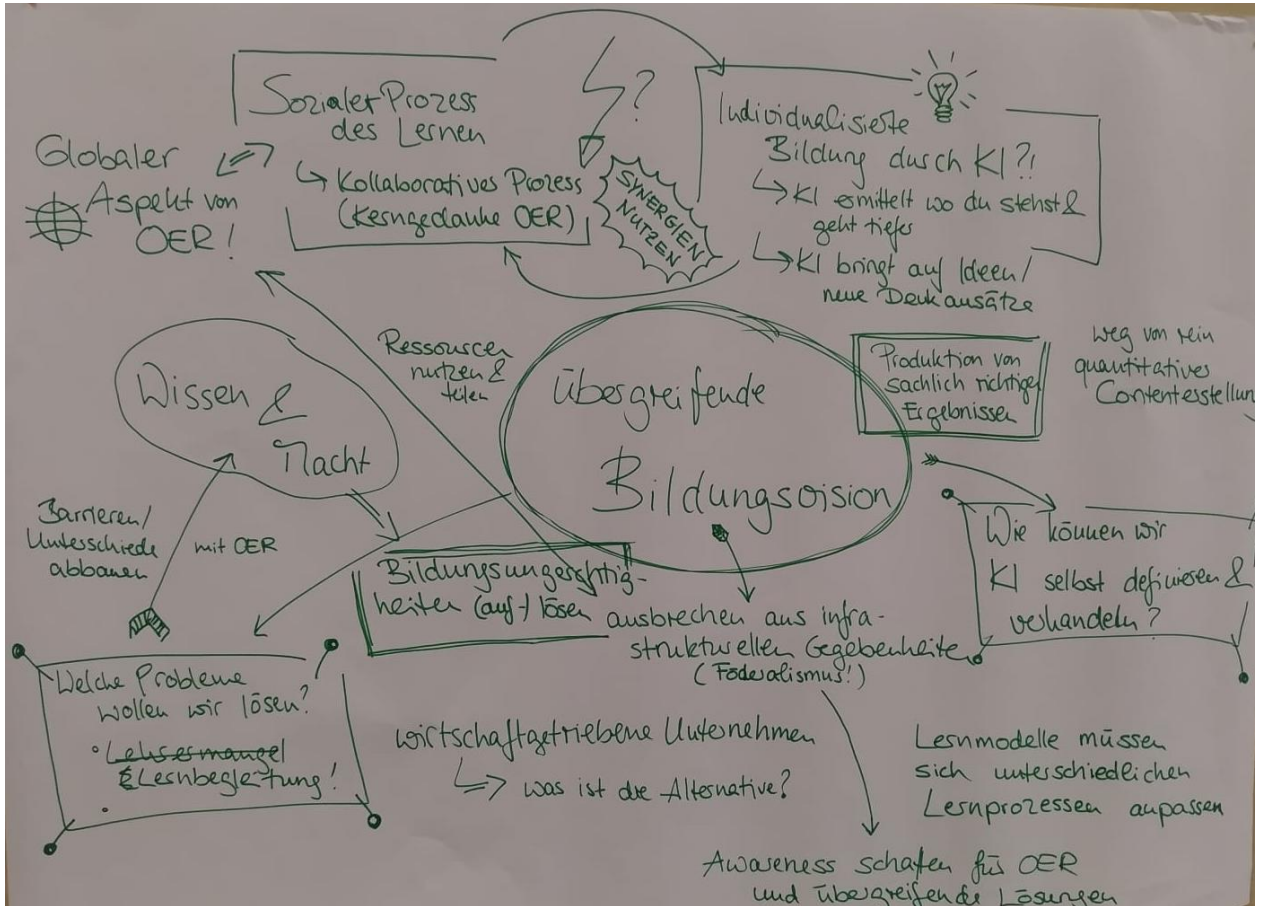 Globaler
Aspekt von
OER!
Sozialer Prozess
des Lernen
Kollaboratives Prozess
(Kerngedanke OER)
?
SYNERGIEN
NUTZEN
Individualisierte
Bildung durch KI?!
KI ermittelt wo du stehst &
geht tiefer
KI bringt auf Ideen/
neue Denkansätze
Wissen &
Macht
Ressourcen
nutzen &
teilen
Übergreifende
Bildungsvision
Produktion von
sachlich richtigen
Ergebnissen
weg von rein
quantitatives
Contenterstellun
Barrieren/
Unterschiede
abbauen
mit OER
Bildungsungerechtig-
keiten (auf-) lösen
ausbrechen aus infra-
strukturellen Gegebenheiten
(Föderalismus!)
Wie können wir
KI selbst definieren &
verhandeln?
Welche Probleme
wollen wir lösen?
Lehrermangel
Lernbegleitung!
wirtschaftgetriebene Unternehmen
was ist die Alternative?
Lernmodelle müssen
sich unterschiedlichen
Lernprozessen anpassen
Awareness schaffen für OER
und übergreifende Lösungen